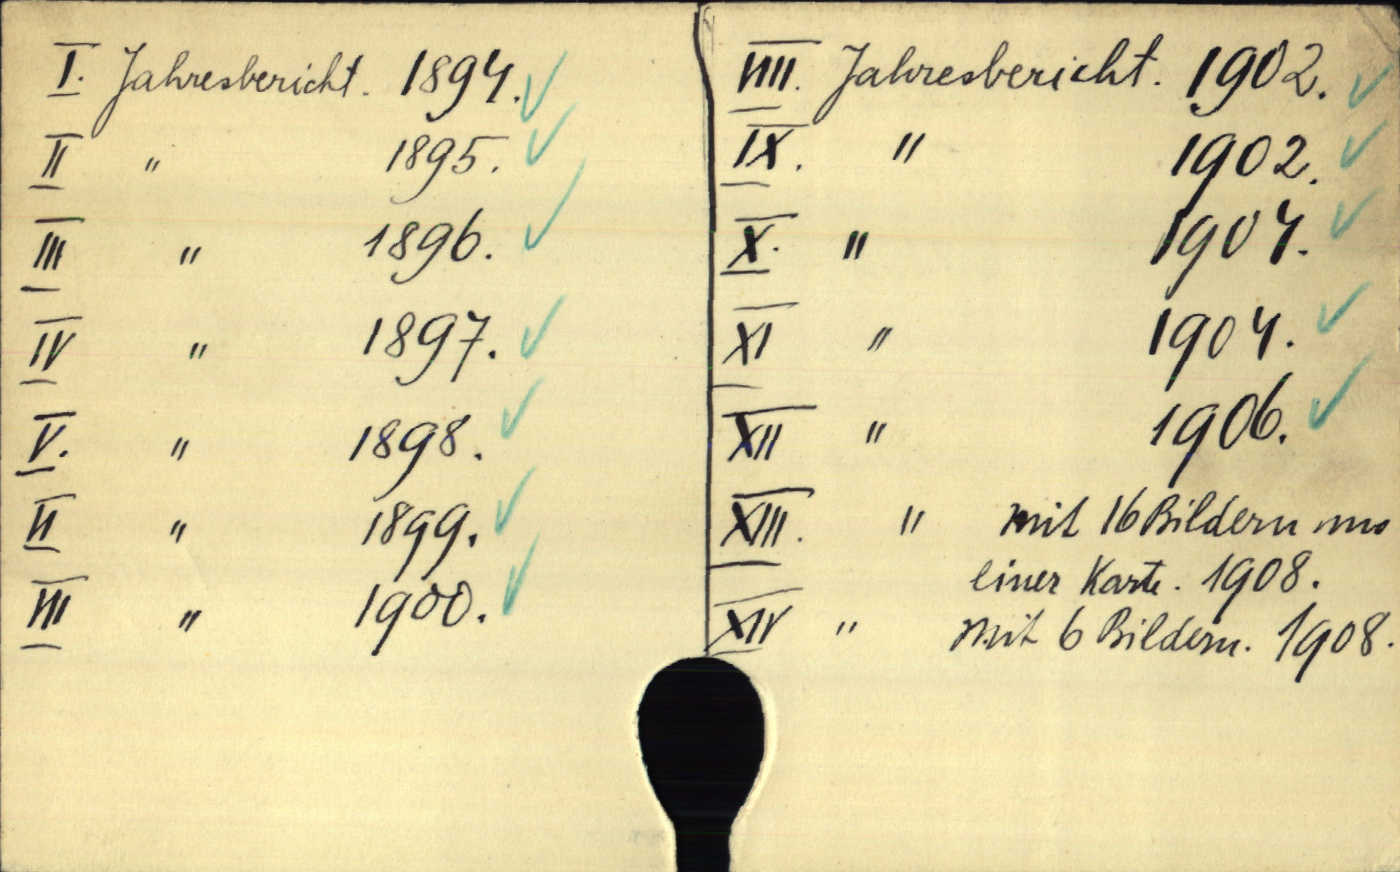 I. Jahresbericht. 1894.
II " 1895.
III " 1896.
IV " 1897.
V. " 1898.
VI " 1899.
VII " 1900.
VIII. Jahresbericht. 1902.
IX. " 1902.
X. " 1904.
XI " 1904.
XII " 1906.
XIII. " mit 16 Bildern und
einer Karte. 1908.
XIV " mit 6 Bildern. 1908.